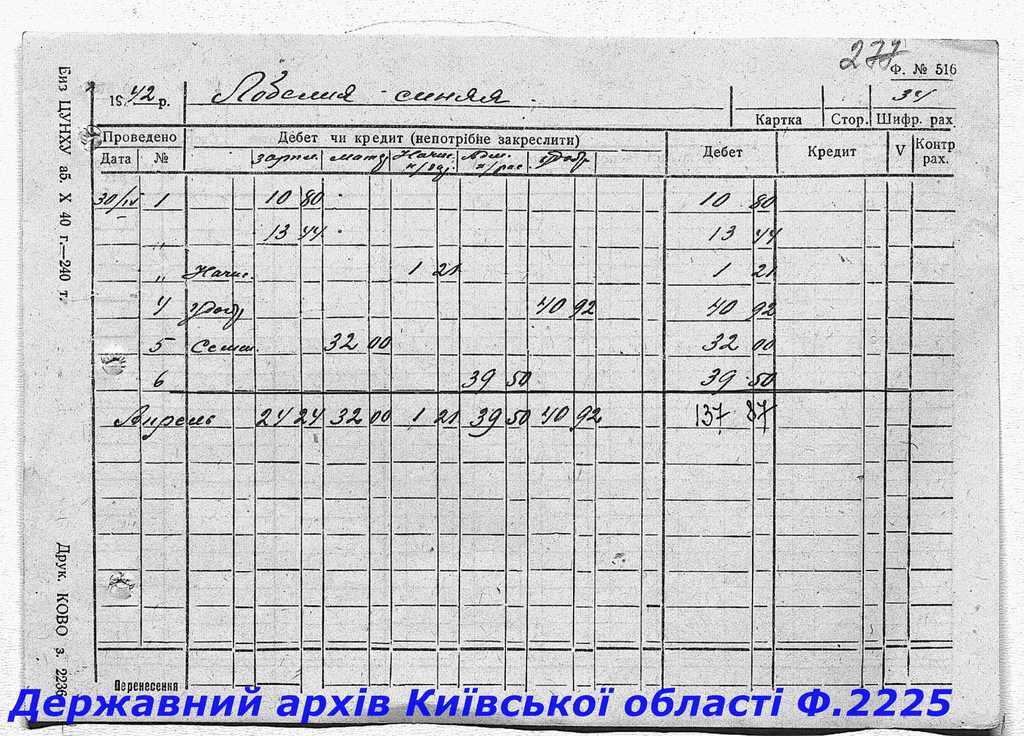 277
Ф. № 516
1942 р. Лобелия синяя
34
Картка Стор. Шифр. рах
Проведено Дебет чи кредит (непотрібне закреслити) Дебет Кредит V Контр рах.
Дата № зарпл. мат. Начис. н/зар. Адм. н/рас.
30/IV 1 10 80 10 80
" 13 44 13 44
" Начис. 1 21 1 21
4 40 92 40 92
5 Семен. 32 00 32 00
6 39 50 39 50
Апрель 24 24 32 00 1 21 39 50 40 92 137 87
Перенесення
Биз ЦУНХУ аб. X 40 г.—240 т.
Друк. КОВО з. 2236
Державний архів Київської області Ф.2225